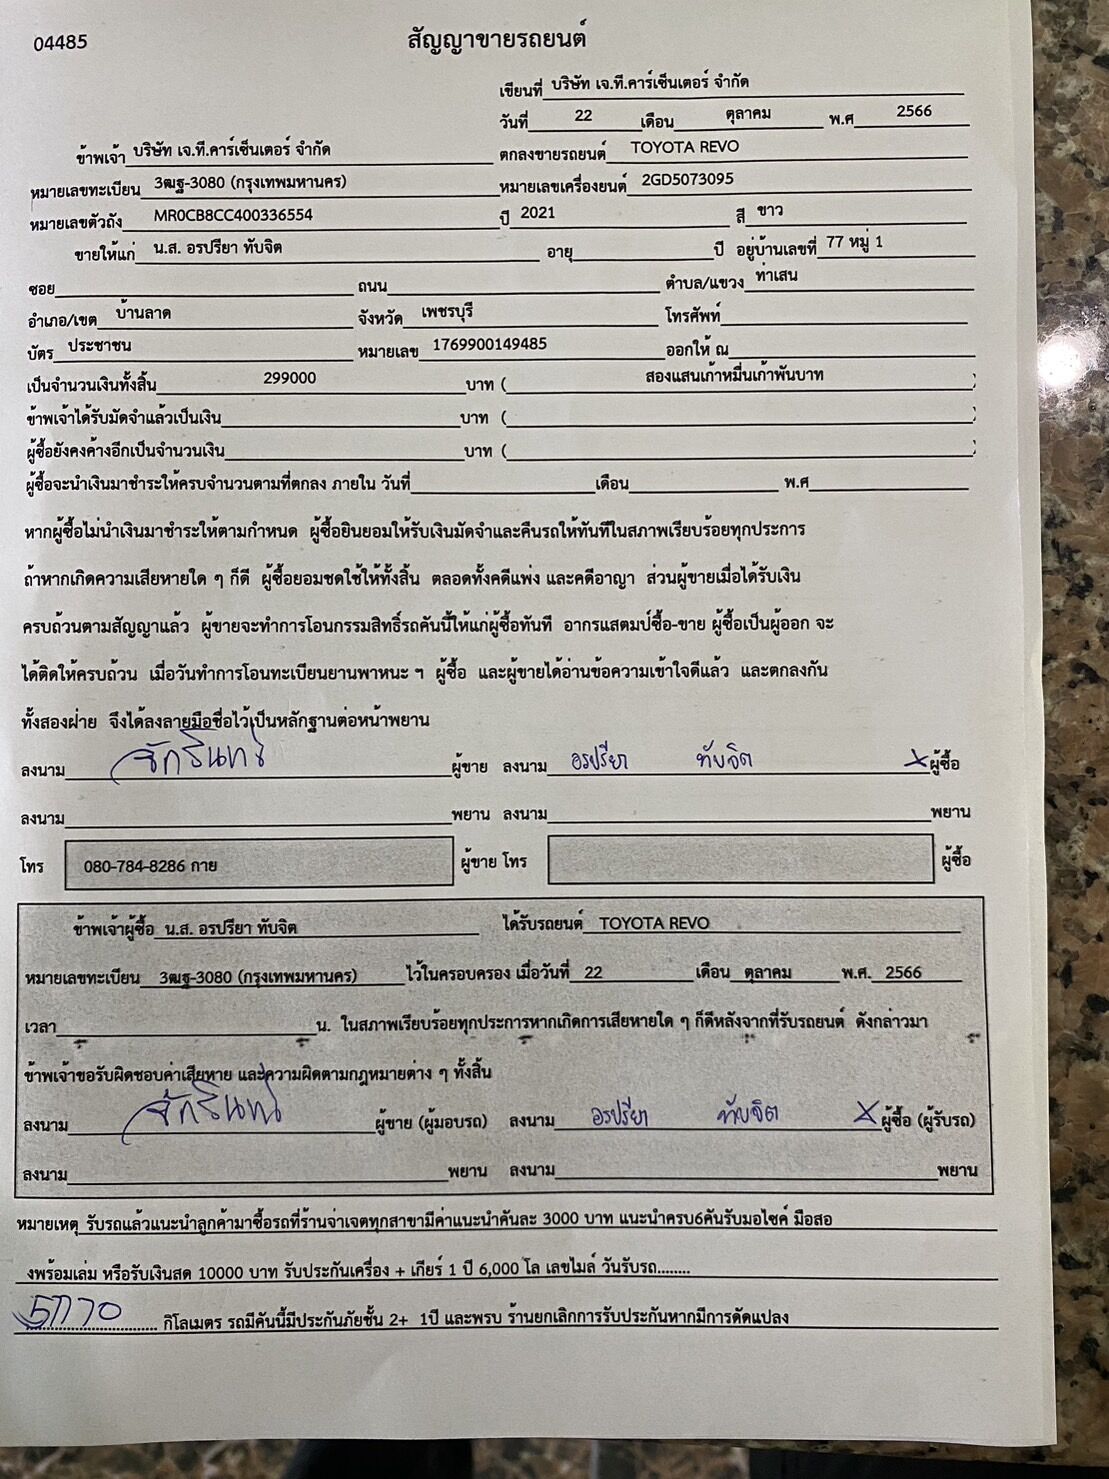 04485
สัญญาขายรถยนต์
เขียนที่ บริษัท เจ.ที.คาร์เซ็นเตอร์ จำกัด
วันที่ 22 เดือน ตุลาคม พ.ศ 2566
ข้าพเจ้า บริษัท เจ.ที.คาร์เซ็นเตอร์ จำกัด ตกลงขายรถยนต์ TOYOTA REVO
หมายเลขทะเบียน 3ฒฐ-3080 (กรุงเทพมหานคร) หมายเลขเครื่องยนต์ 2GD5073095
หมายเลขตัวถัง MR0CB8CC400336554 ปี 2021 สี ขาว
ขายให้แก่ น.ส. อรปรียา ทับจิต อายุ ปี อยู่บ้านเลขที่ 77 หมู่ 1
ซอย ถนน ตำบล/แขวง ท่าเสน
อำเภอ/เขต บ้านลาด จังหวัด เพชรบุรี โทรศัพท์
บัตร ประชาชน หมายเลข 1769900149485 ออกให้ ณ
เป็นจำนวนเงินทั้งสิ้น 299000 บาท ( สองแสนเก้าหมื่นเก้าพันบาท )
ข้าพเจ้าได้รับมัดจำแล้วเป็นเงิน บาท ( )
ผู้ซื้อยังคงค้างอีกเป็นจำนวนเงิน บาท ( )
ผู้ซื้อจะนำเงินมาชำระให้ครบจำนวนตามที่ตกลง ภายใน วันที่ เดือน พ.ศ
หากผู้ซื้อไม่นำเงินมาชำระให้ตามกำหนด ผู้ซื้อยินยอมให้รับเงินมัดจำและคืนรถให้ทันทีในสภาพเรียบร้อยทุกประการ
ถ้าหากเกิดความเสียหายใด ๆ ก็ดี ผู้ซื้อยอมชดใช้ให้ทั้งสิ้น ตลอดทั้งคดีแพ่ง และคดีอาญา ส่วนผู้ขายเมื่อได้รับเงิน
ครบถ้วนตามสัญญาแล้ว ผู้ขายจะทำการโอนกรรมสิทธิ์รถคันนี้ให้แก่ผู้ซื้อทันที อากรแสตมป์ซื้อ-ขาย ผู้ซื้อเป็นผู้ออก จะ
ได้ติดให้ครบถ้วน เมื่อวันทำการโอนทะเบียนยานพาหนะ ฯ ผู้ซื้อ และผู้ขายได้อ่านข้อความเข้าใจดีแล้ว และตกลงกัน
ทั้งสองฝ่าย จึงได้ลงลายมือชื่อไว้เป็นหลักฐานต่อหน้าพยาน
ลงนาม จักรินทร์ ผู้ขาย ลงนาม อรปรียา ทับจิต X ผู้ซื้อ
ลงนาม พยาน ลงนาม พยาน
โทร 080-784-8286 กาย ผู้ขาย โทร ผู้ซื้อ
ข้าพเจ้าผู้ซื้อ น.ส. อรปรียา ทับจิต ได้รับรถยนต์ TOYOTA REVO
หมายเลขทะเบียน 3ฒฐ-3080 (กรุงเทพมหานคร) ไว้ในครอบครอง เมื่อวันที่ 22 เดือน ตุลาคม พ.ศ. 2566
เวลา น. ในสภาพเรียบร้อยทุกประการหากเกิดการเสียหายใด ๆ ก็ดีหลังจากที่รับรถยนต์ ดังกล่าวมา
ข้าพเจ้าขอรับผิดชอบค่าเสียหาย และความผิดตามกฎหมายต่าง ๆ ทั้งสิ้น
ลงนาม จักรินทร์ ผู้ขาย (ผู้มอบรถ) ลงนาม อรปรียา ทับจิต X ผู้ซื้อ (ผู้รับรถ)
ลงนาม พยาน ลงนาม พยาน
หมายเหตุ รับรถแล้วแนะนำลูกค้ามาซื้อรถที่ร้านจ่าเจตทุกสาขามีค่าแนะนำคันละ 3000 บาท แนะนำครบ6คันรับมอไซค์ มือสอ
งพร้อมเล่ม หรือรับเงินสด 10000 บาท รับประกันเครื่อง + เกียร์ 1 ปี 6,000 โล เลขไมล์ วันรับรถ........
กิโลเมตร รถมีคันนี้มีประกันภัยชั้น 2+ 1ปี และพรบ ร้านยกเลิกการรับประกันหากมีการดัดแปลง